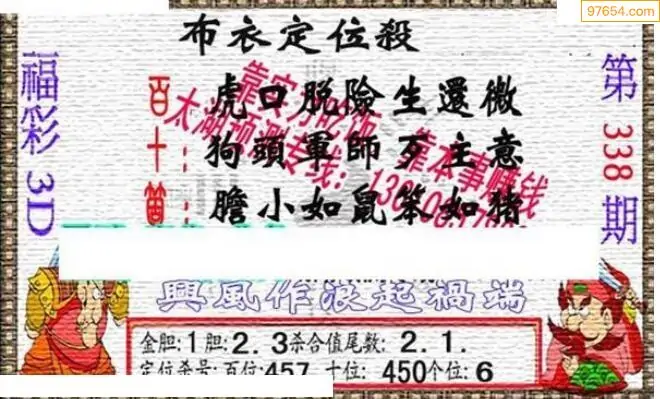 97654.com
布衣定位殺
福彩 3D
第 338 期
百十個
虎口脱險生還微
狗頭軍師歹主意
膽小如鼠笨如猪
興風作浪起禍端
金胆:1胆:2.3杀合值尾数: 2.1.
定位杀号:百位:457 十位: 450个位:6